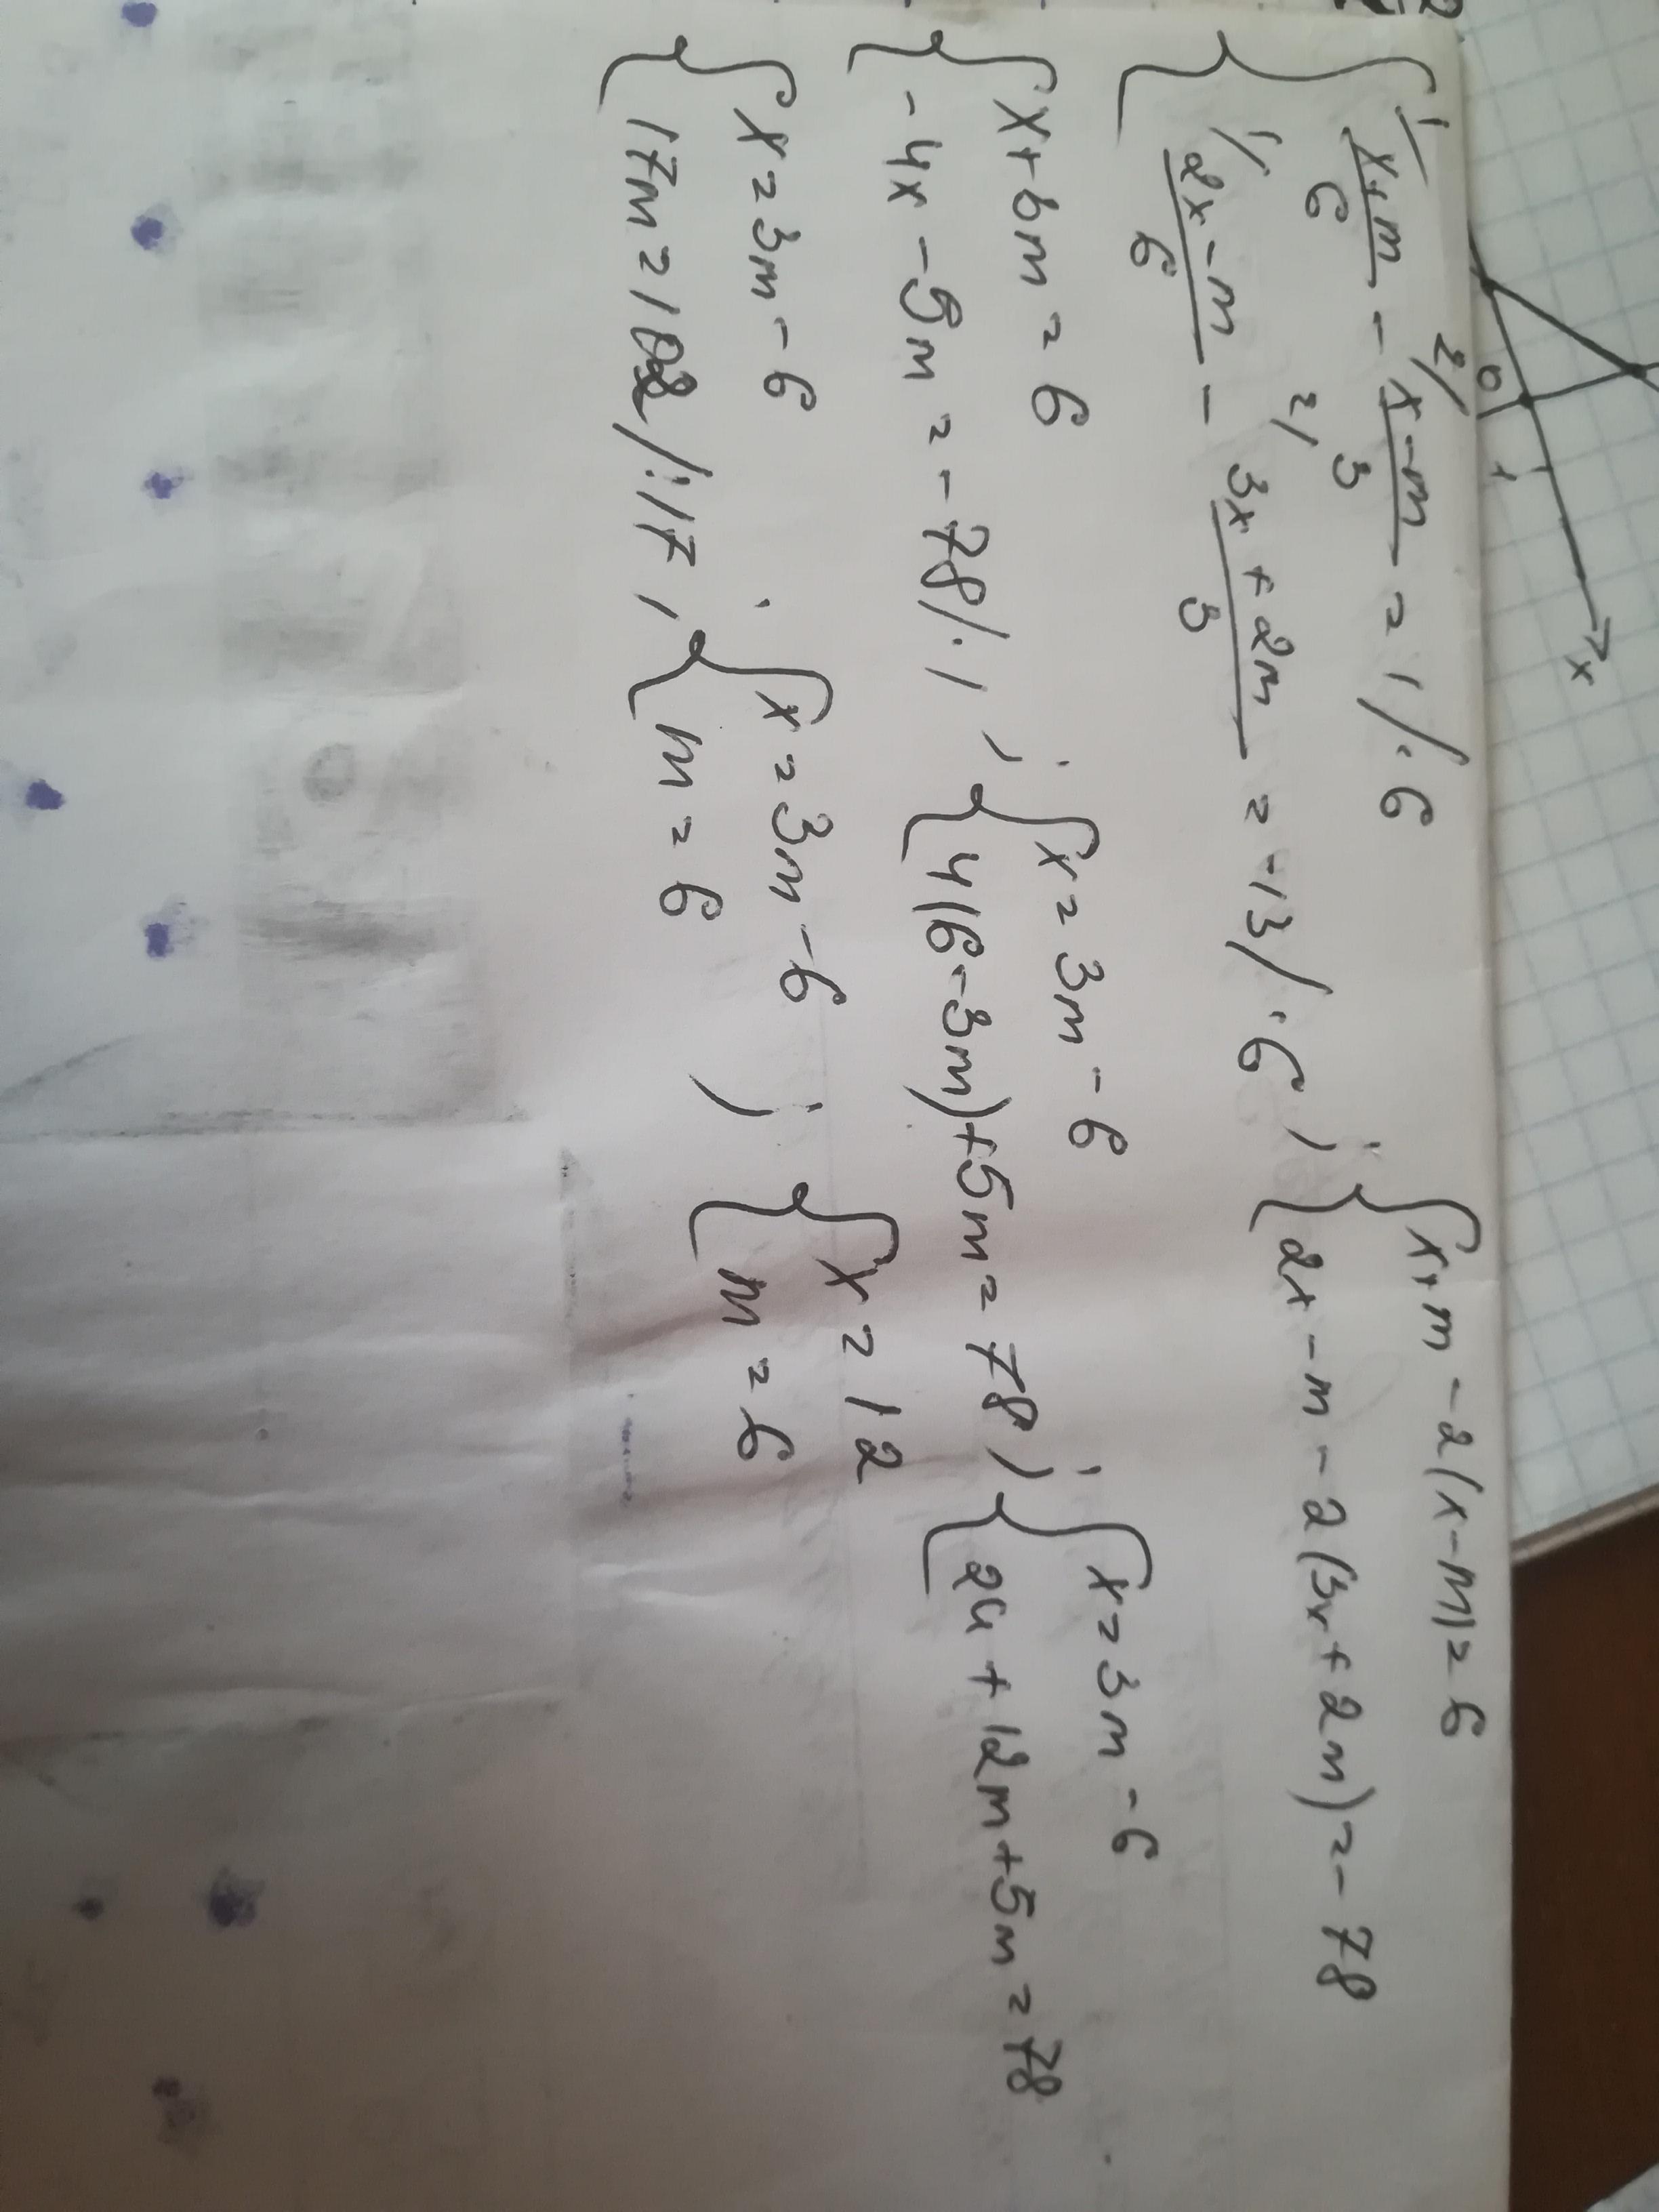 0 1 x
{ x+m/6 - x-m/3 = 1 /·6
{ 2x-m/6 - 3x+2m/3 = -13 /·6 ; { x+m-2(x-m)=6
{ 2x-m-2(3x+2m)=-78
{ x+6m=6
{ -4x-5m=-78/·1 ; { x=3m-6
{ 4(6-3m)+5m=78 ; { x=3m-6
{ 24+12m+5m=78
{ x=3m-6
{ 17m=102/:17 ; { x=3m-6
{ m=6 ; { x=12
{ m=6